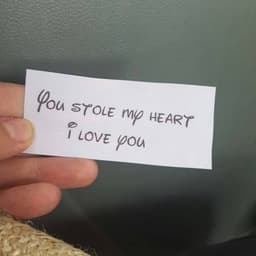 You stole my heart
i love you